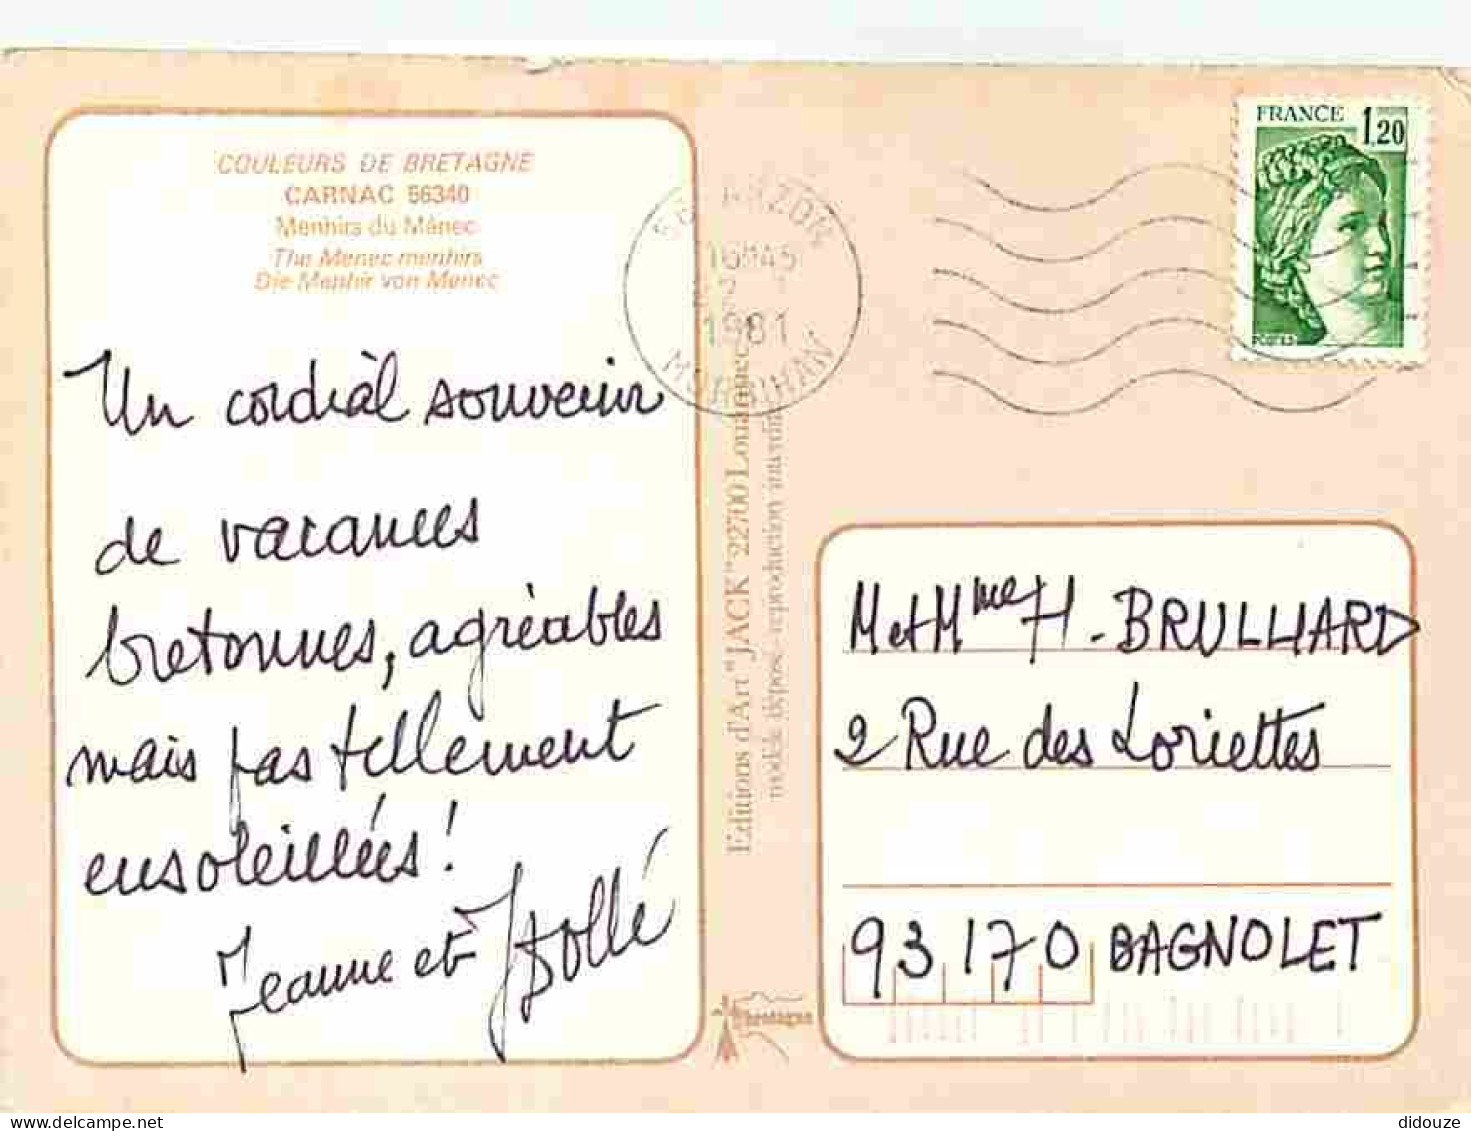 COULEURS DE BRETAGNE
CARNAC 56340
Menhirs du Ménec
The Menec menhirs
Die Menhir von Menec
Un cordial souvenir
de vacances
bretonnes, agréables
mais pas tellement
ensoleillées !
Jeanne et
ARZON
16H45
1981
MORBIHAN
Editions d'Art "JACK" 22700 Louannec
modèle déposé - reproduction interdite
bretagne
FRANCE
1,20
M et Mme H. BRULLIARD
2 Rue des Loriettes
93170 BAGNOLET
didouze